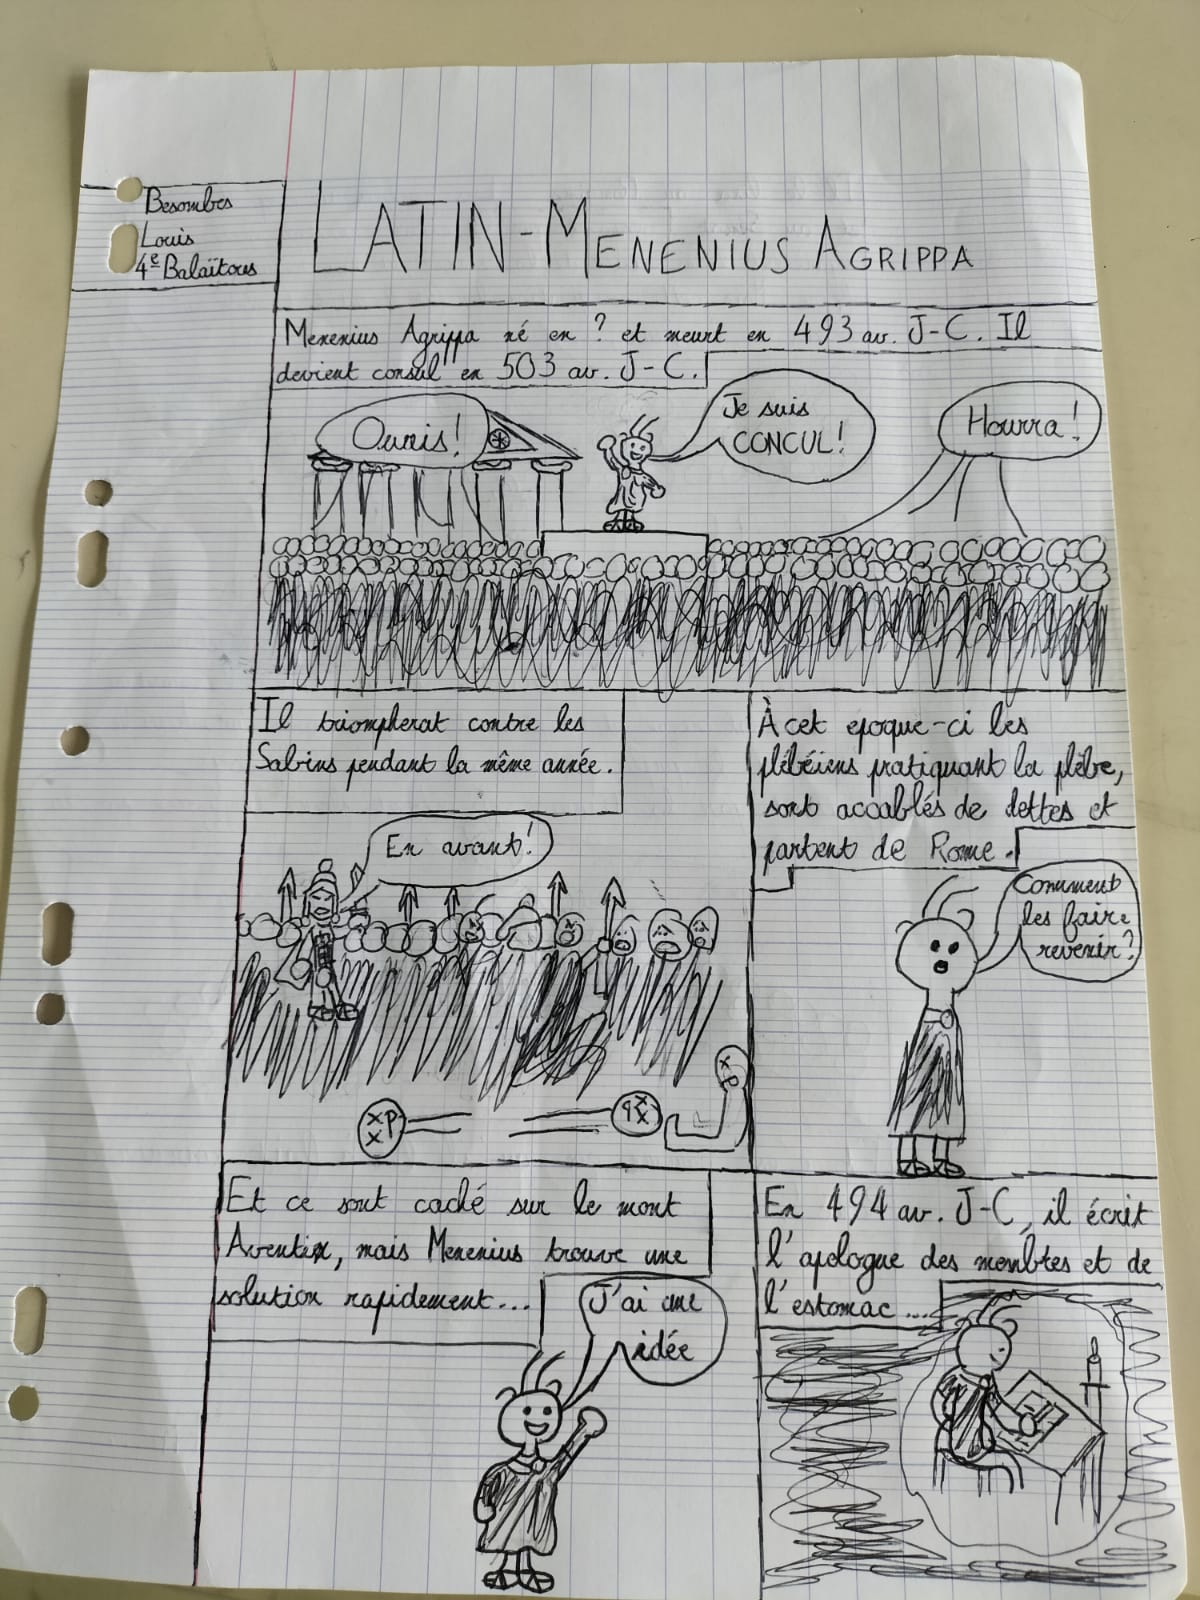 Besombes
Louis
4e Balaïtous
LATIN-MENENIUS AGRIPPA
Menenius Agrippa né en ? et meurt en 493 av. J-C. Il
devient consul en 503 av. J-C.
Ouais!
Je suis
CONCUL!
Hourra!
Il triompherat contre les
Sabins pendant la même année.
En avant!
À cet epoque-ci les
plébéiens pratiquant la plèbe,
sont accablés de dettes et
partent de Rome.
Comment
les faire
revenir?
Et ce sont caché sur le mont
Aventin, mais Menenius trouve une
solution rapidement...
J'ai une
idée
En 494 av. J-C, il écrit
l'apologue des membres et de
l'estomac....